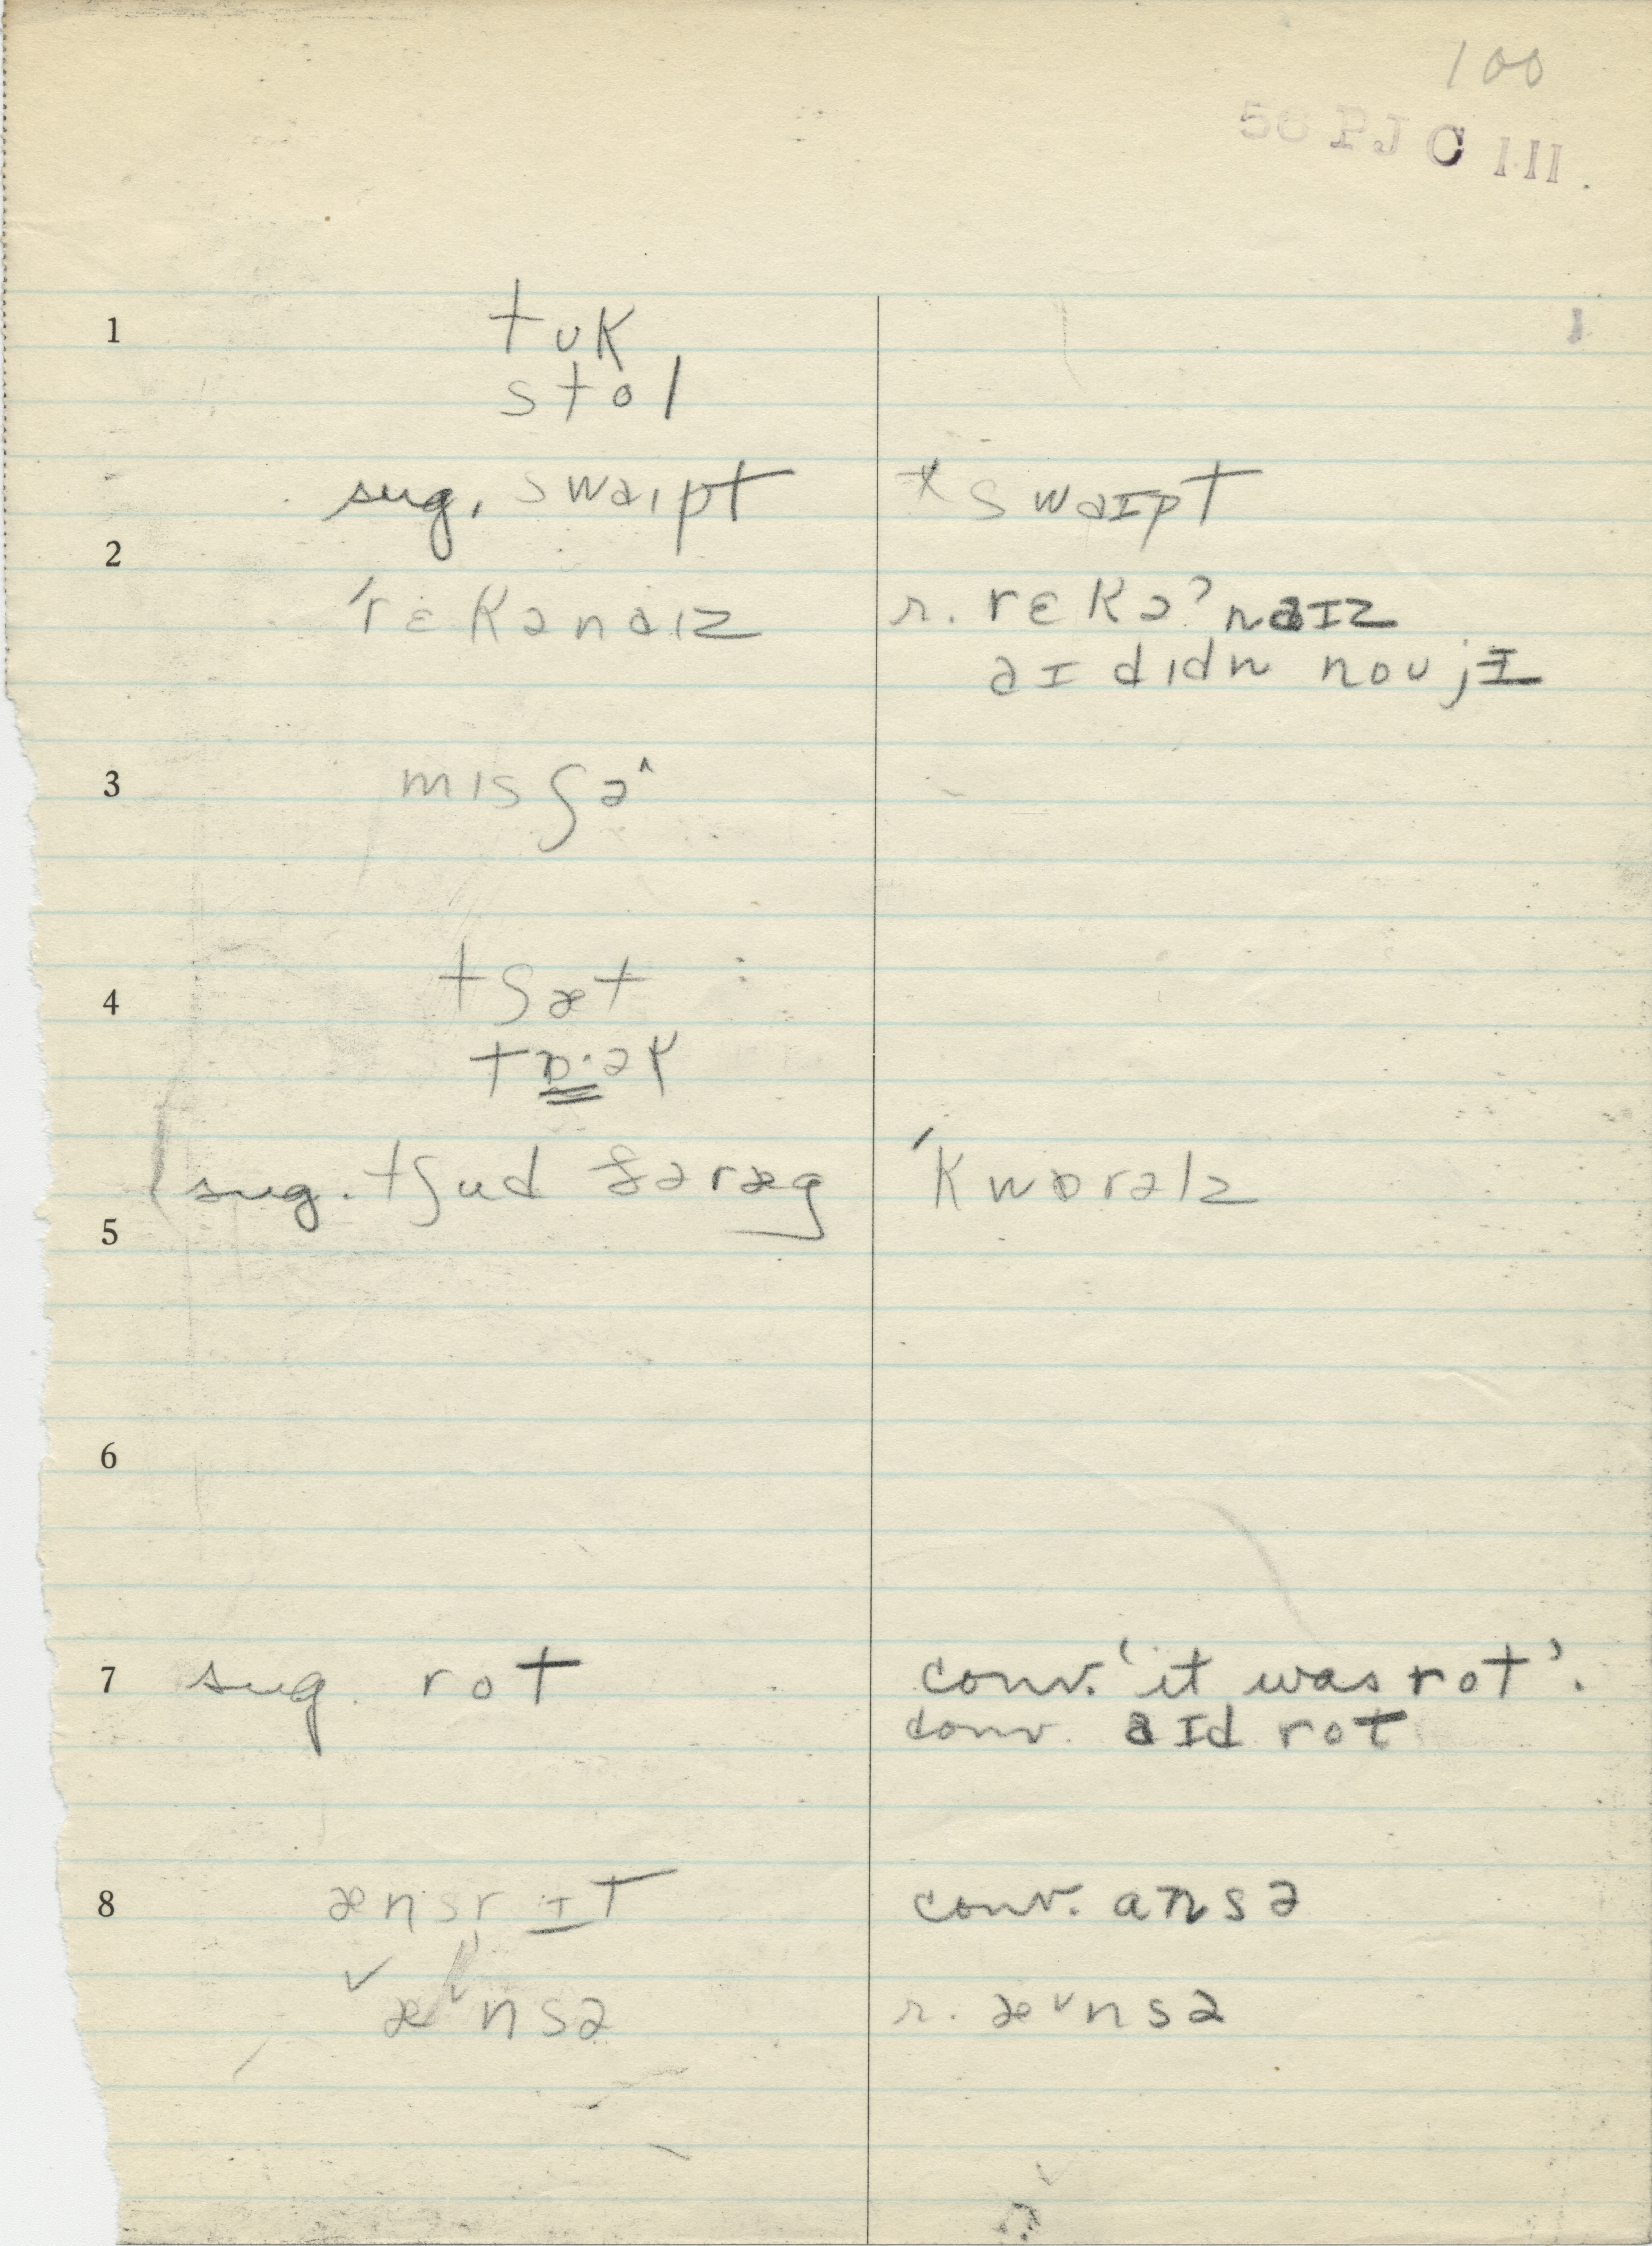 100
56 PJ C III
1
tʊk
stol
sug. swaɪpt
* swaɪpt
2
ˈrɛkənaɪz
r. rɛkəˀnaɪz
aɪ dɪdn noʊ jɪ
3
mɪsʃə^
4
tʃæt
sug. tʃud
ˈkwɒrəlz
5
6
7
sug. rot
conv. 'it was rot'.
conv. aɪd rot
8
ænsr ɪt
conv. ansə
✓
æ˅nsə
r. æ˅nsə